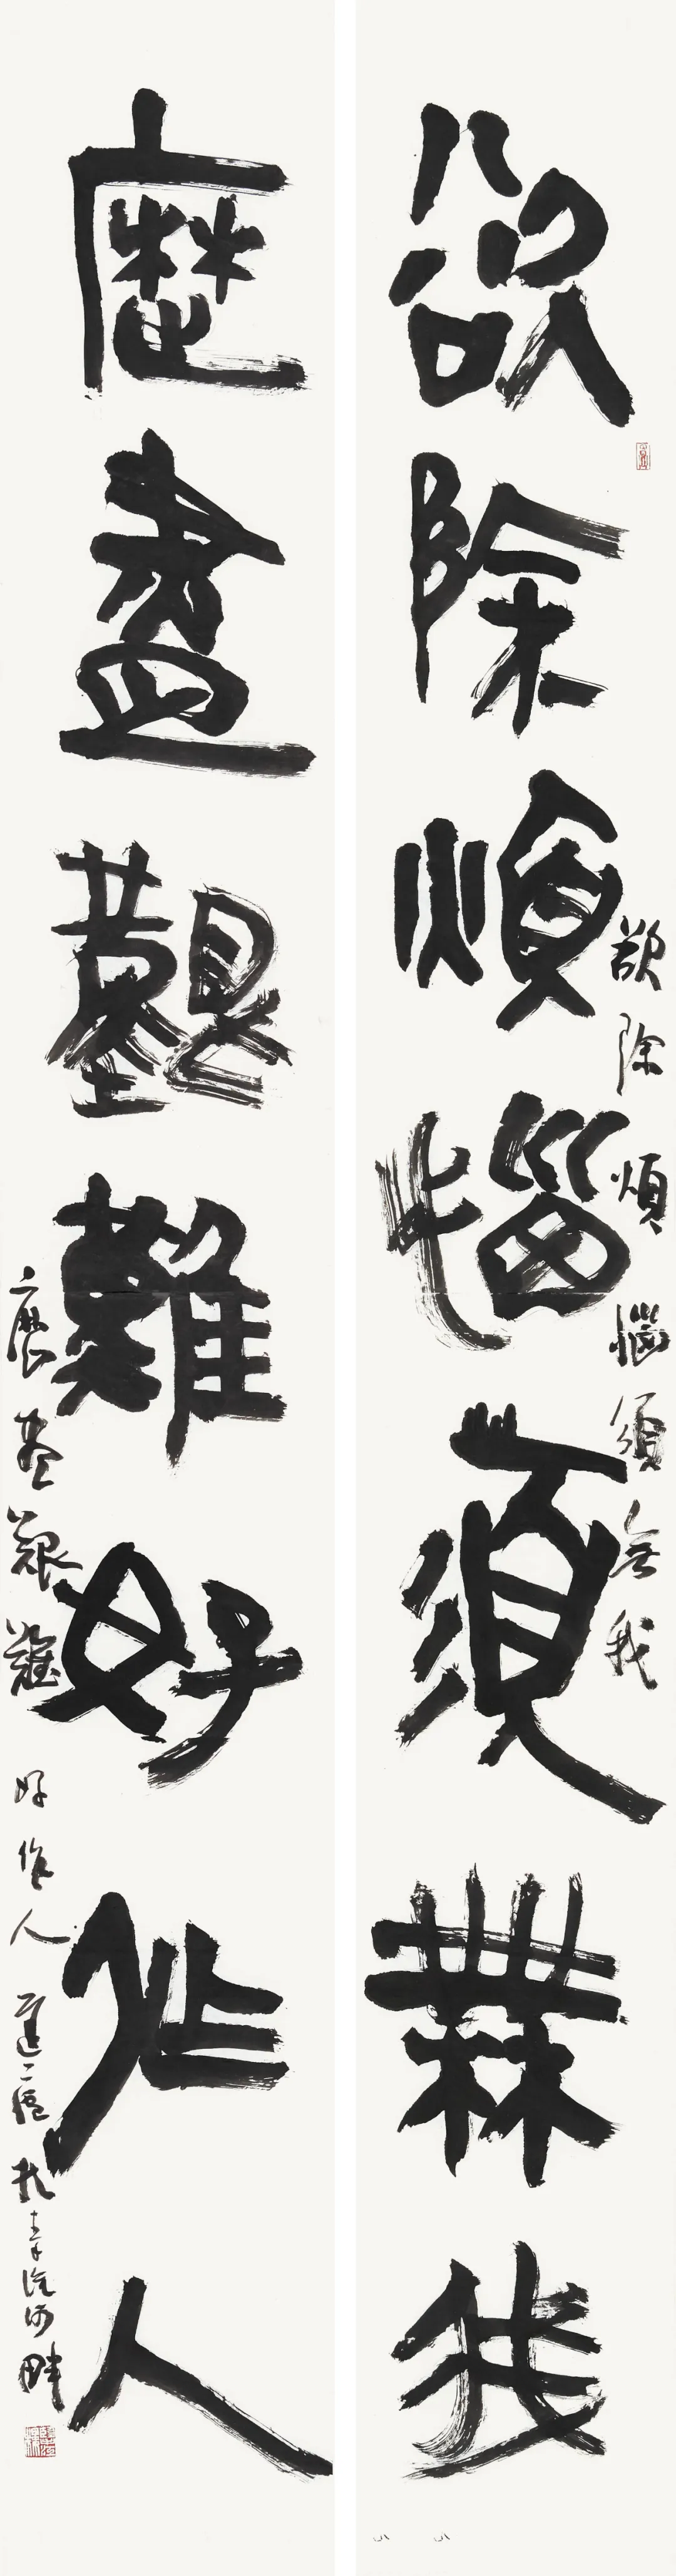 欲除煩惱須無我
欲除煩惱須無我
歷盡艱難好作人
歷盡艱難好作人